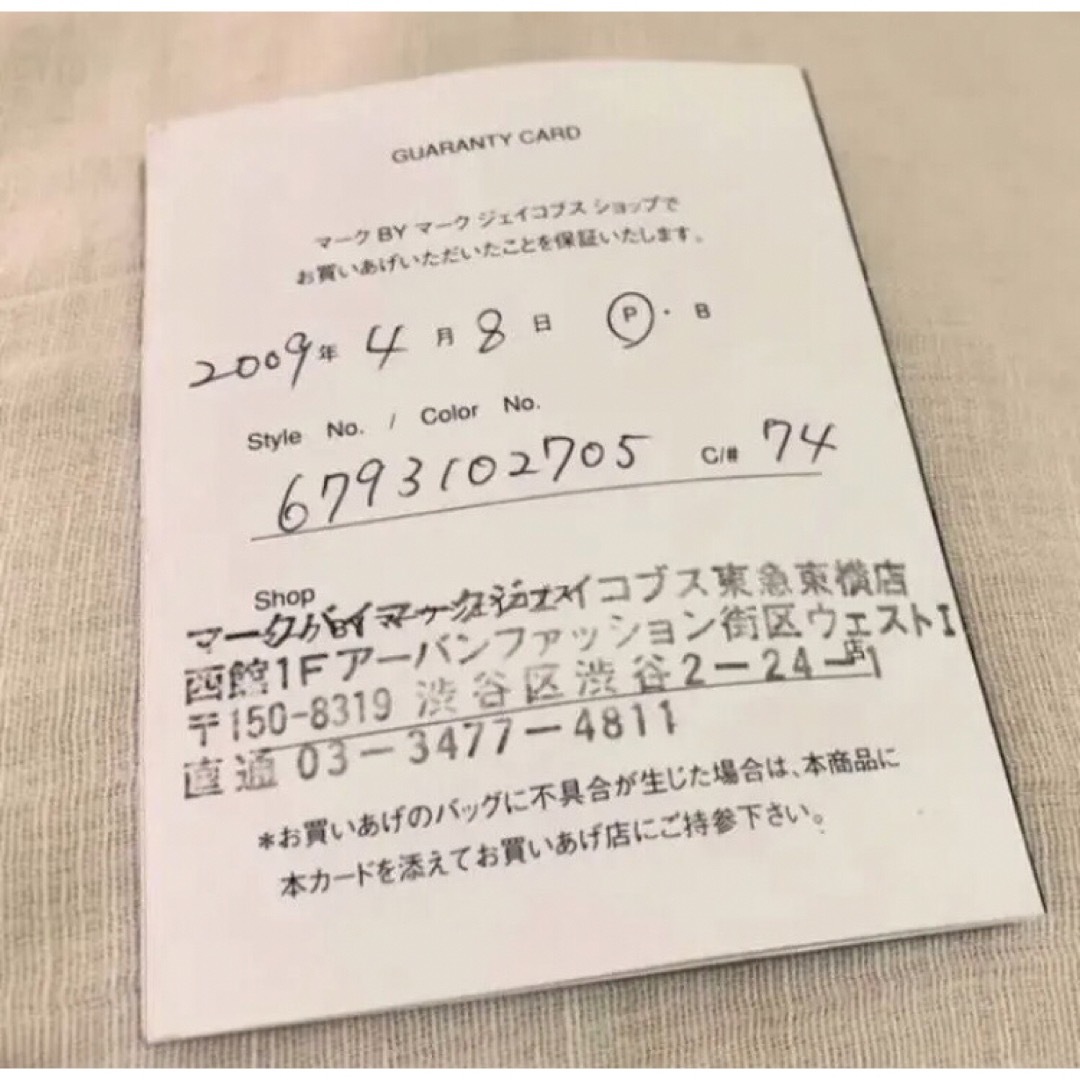 GUARANTY CARD
マーク BY マーク ジェイコブス ショップで
お買いあげいただいたことを保証いたします。
2009年 4月 8日 P・B
Style No. / Color No.
6793102705 C/# 74
Shop
イコブス東急東横店
西館1Fアーバンファッション街区ウエストI
〒150-8319 渋谷区渋谷2-24-1
店
直通 03-3477-4811
*お買いあげのバッグに不具合が生じた場合は、本商品に
本カードを添えてお買いあげ店にご持参下さい。